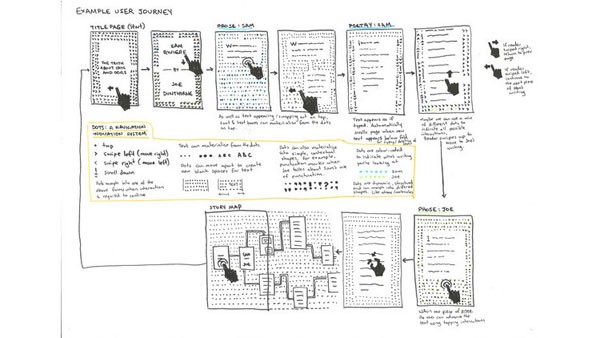 EXAMPLE USER JOURNEY
TITLE PAGE (Start)
THE TRUTH
ABOUT CATS
AND DOGS
SAM
BY
JOE
DUNTHORNE
PROSE: SAM
POETRY: SAM
As well as text appearing
on top,
text & text boxes can materialise from the dots
on top.
Text appears as if
typed. Automatically
scrolls page when new
text appears below fold
Maybe we can use a mix
of different dots to
indicate all possible
interactions.
If reader
swipes right,
return to
page
If reader
swipes left,
continue to
the next piece
of
writing
DOTS: A NAVIGATION
INDICATION SYSTEM
• tap
< swipe left (move right)
> swipe right (move left)
scroll down
Dots morph into one of the
above forms when interaction
is required to continue
Text can materialise from the dots
ABC
Dots can move apart to create
new blank spaces for text
TEXT
Dots can also materialise
into simple, contextual
shapes, for example,
punctuation marks when
Joe talks about Sam's use
of punctuation.
Dots are colour-coded
to indicate what writing
you're looking at
SAM
JOE
Dots are dynamic,
and can morph into different
shapes, like above examples
STORY MAP
SAM
JOE
PROSE: JOE
Within one piece of prose
the user can advance the
text using tapping interactions